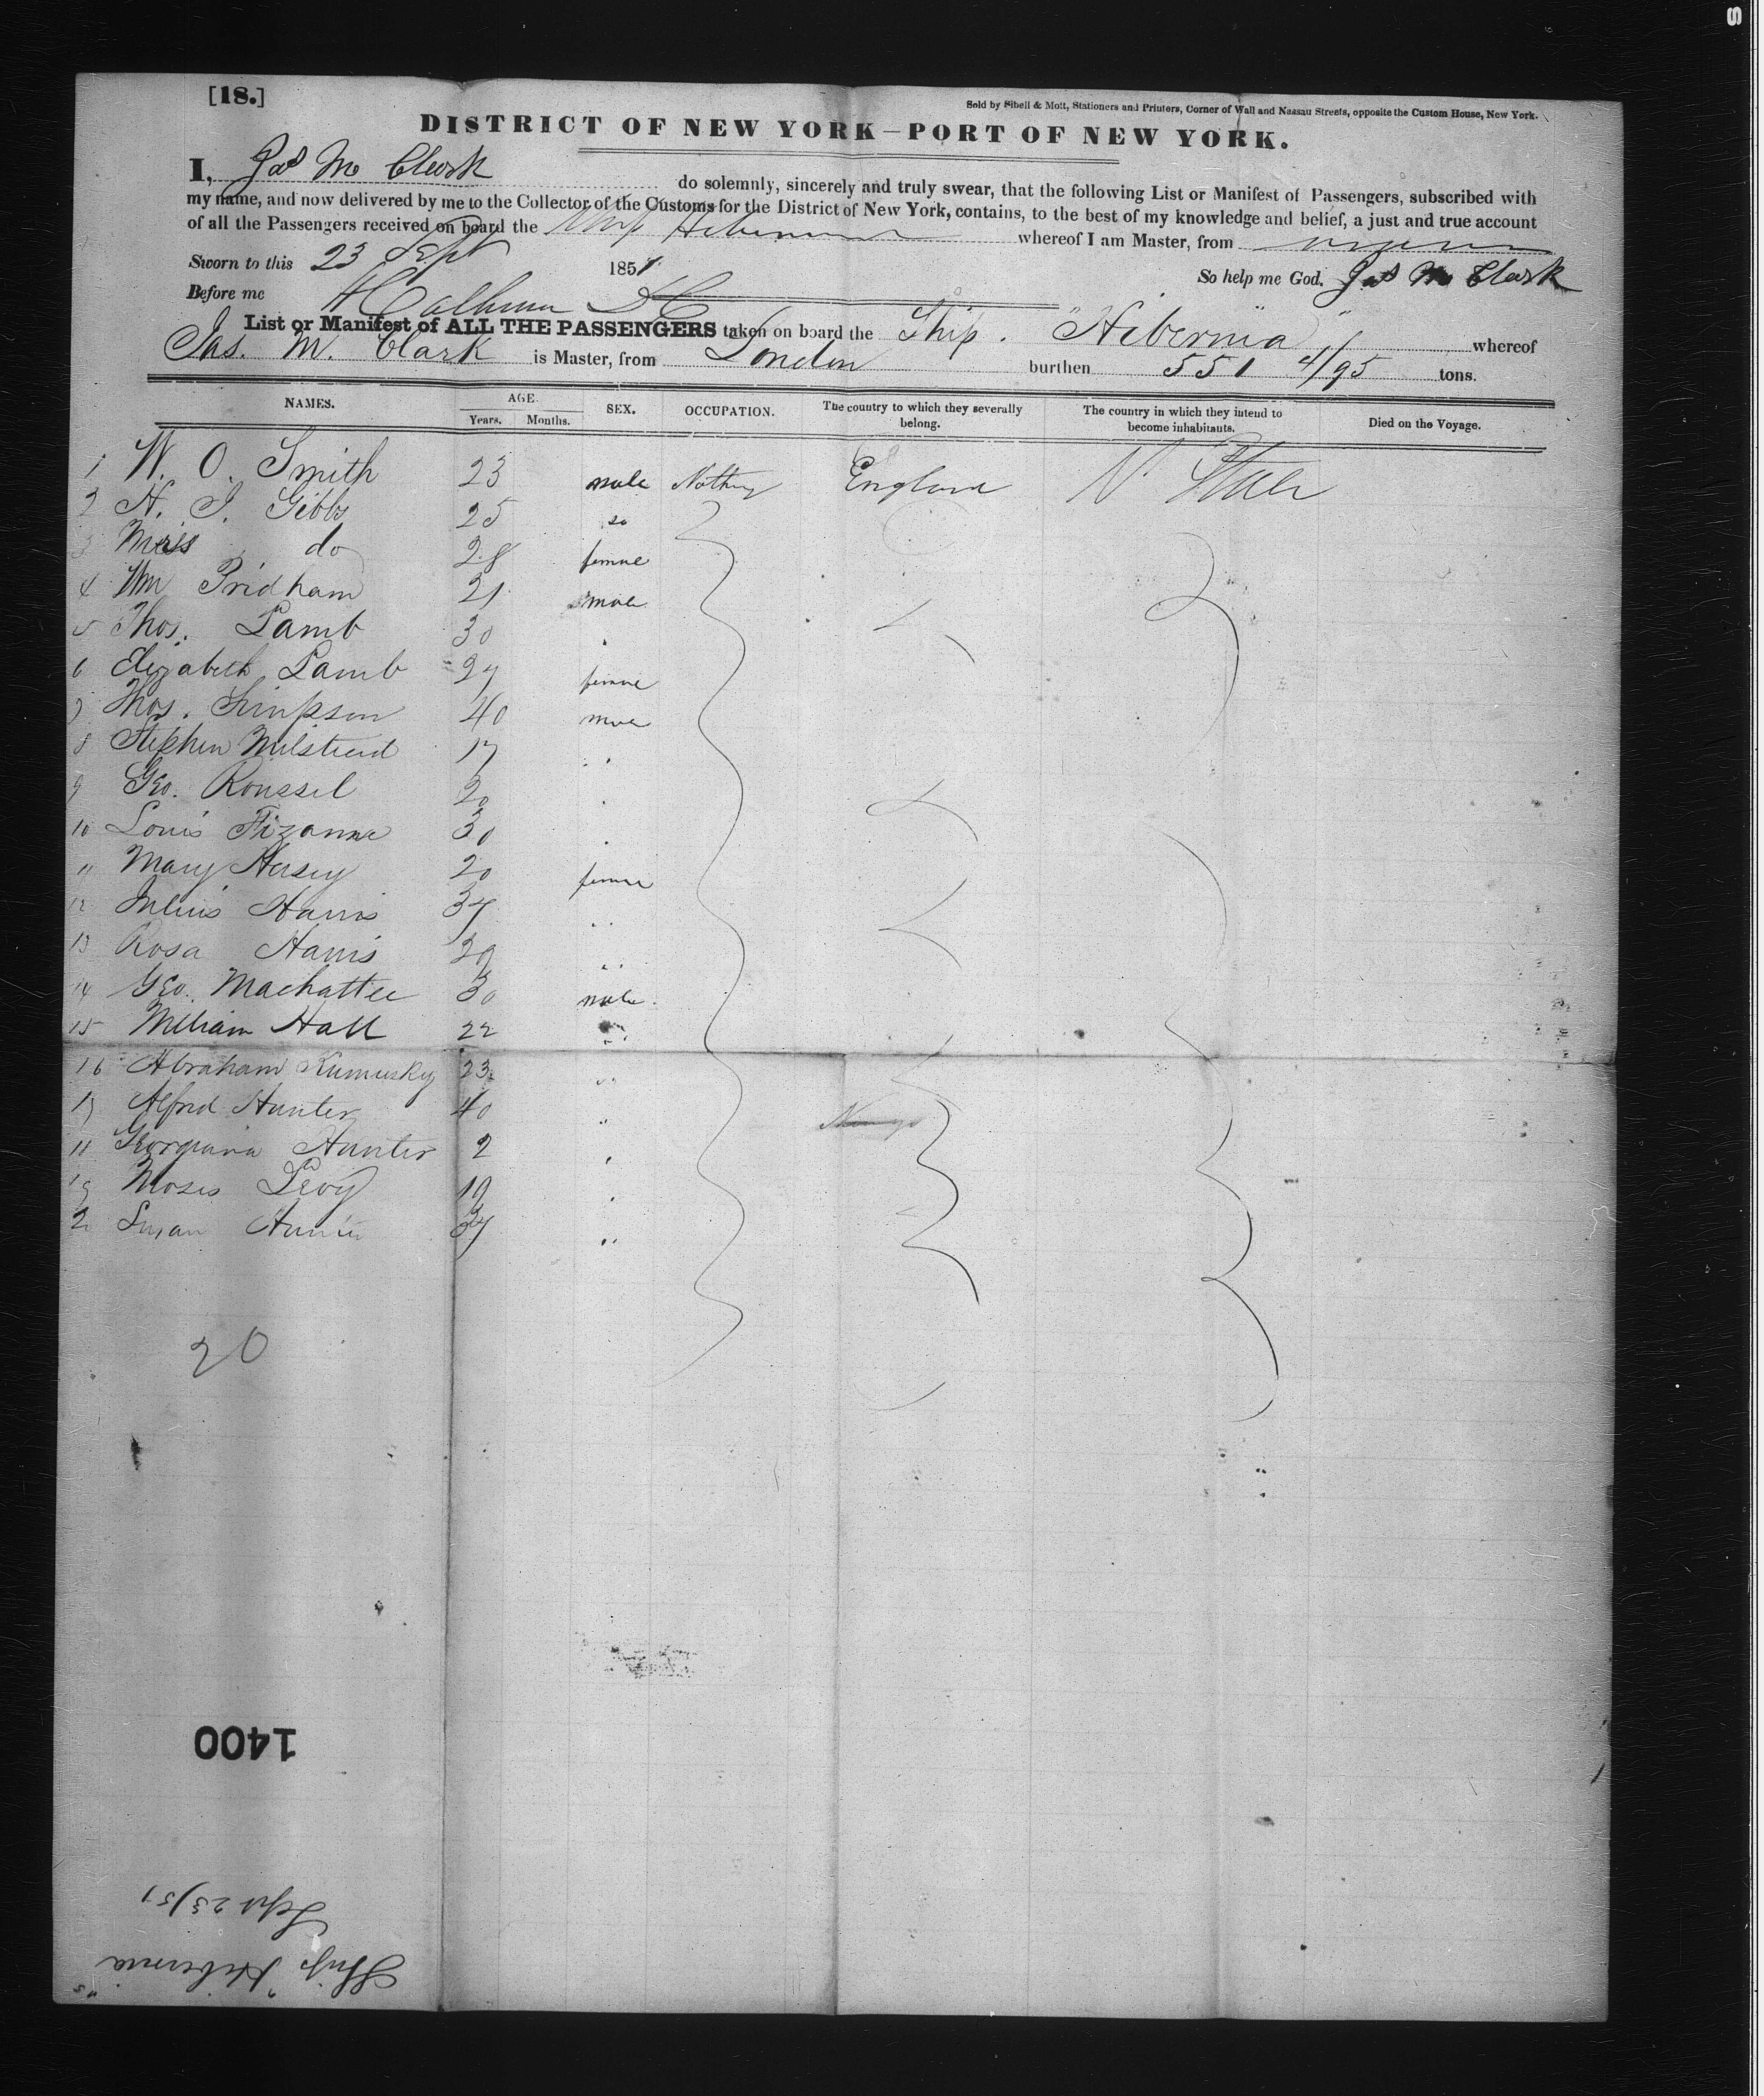 [18.]
Sold by Sibell & Mott, Stationers and Printers, Corner of Wall and Nassau Streets, opposite the Custom House, New York.
DISTRICT OF NEW YORK—PORT OF NEW YORK.
I, Jas M Clark do solemnly, sincerely and truly swear, that the following List or Manifest of Passengers, subscribed with
my name, and now delivered by me to the Collector of the Customs for the District of New York, contains, to the best of my knowledge and belief, a just and true account
of all the Passengers received on board the Ship Hibernia whereof I am Master, from
Sworn to this 23 Sept 1851 So help me God. Jas M Clark
Before me Calhoun
List or Manifest of ALL THE PASSENGERS taken on board the Ship. "Hibernia" whereof
Jas. M. Clark is Master, from London burthen 551 4/95 tons.
NAMES. AGE. Years. Months. SEX. OCCUPATION. The country to which they severally belong. The country in which they intend to become inhabitants. Died on the Voyage.
1 W. O. Smith 23 male Nothing England
2 H. I. Gibbs 25 do
3 do 28 female
4 Wm Pridham 21 male
5 Thos. Lamb 30
6 Elizabeth Lamb 27 female
7 Thos. Simpson 40 male
8 Stephen Milstead 17
9 Geo. Roussel 20
10 Louis Fizanne 30
11 Mary Hersey 20 female
12 Julius Harris 37 "
13 Rosa Harris 29 "
14 Geo. Machattie 30 male
15 William Hall 22 "
16 Abraham 23 "
17 Alfred Hunter 40 "
18 Georgiana Hunter 2
19 Moses Levy 19
20 Susan Hunter 37 "
20
1400
Sept 23/51
Ship "Hibernia"